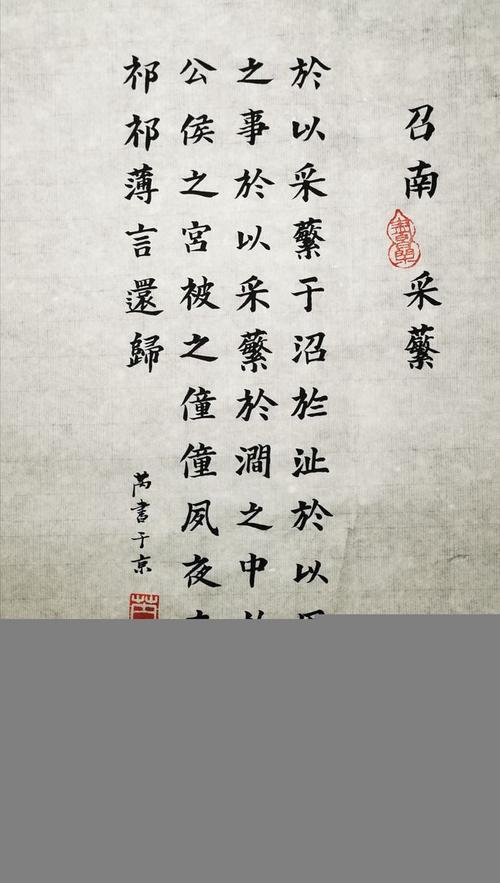 召南 采蘩
於以采蘩于沼於沚於以
之事於以采蘩於澗之中
公侯之宮被之僮僮夙夜
祁祁薄言還歸
芮書于京